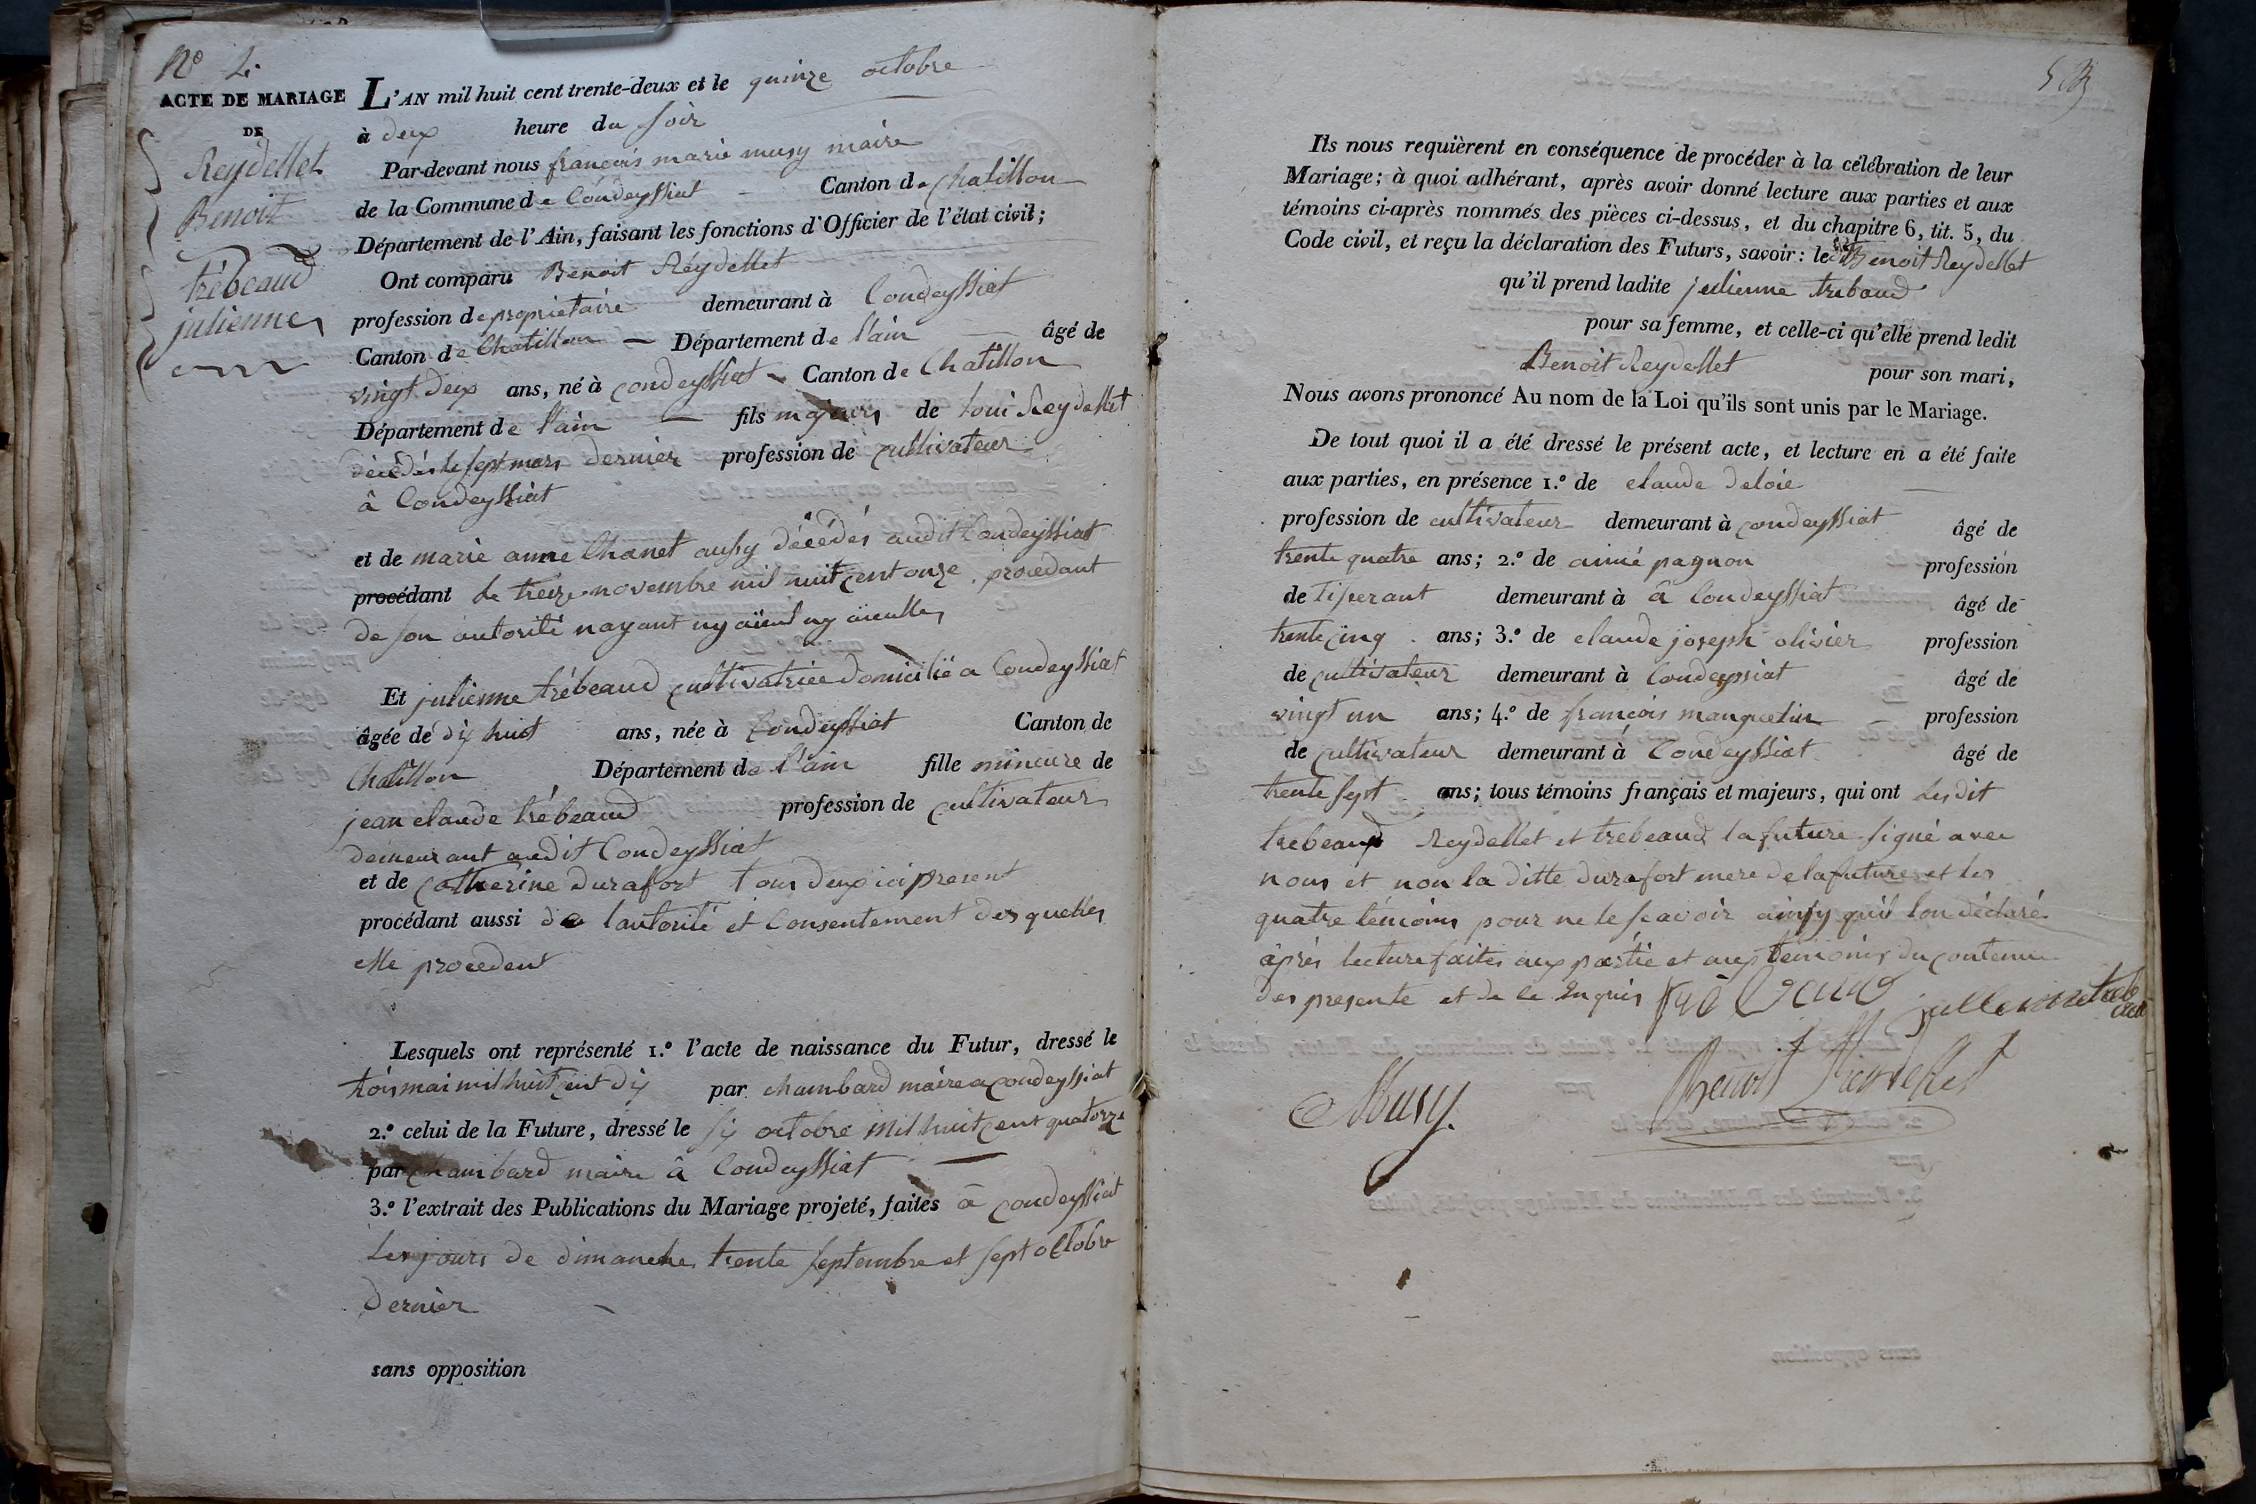 N.º 2.
ACTE DE MARIAGE
DE
Reydellet
Benoit
trébeaud
julienne
L'AN mil huit cent trente-deux et le quinze octobre
à deux heure du soir
Par-devant nous françois marie musy maire
de la Commune de Condeyssiat Canton de chatillon
Département de l'Ain, faisant les fonctions d'Officier de l'état civil;
Ont comparu Benoit Réydellet
profession de propriétaire demeurant à Condeyssiat
Canton de Chatillon — Département de l'ain âgé de
vingt deux ans, né à condeyssiat Canton de Chatillon
Département de l'ain — fils majeur de Loui Reydellet
décédés le sept mars dernier profession de cultivateur
à Condeyssiat
et de marie anne Chanet aussy décédés audit Condeyssiat
procédant le treize novembre mil huit cent onze. procedant
de son autorité nayant ny aieul ny aieulles
Et julienne trébeaud cultivatrice domicilié a Condeyssiat
âgée de dix huit ans, née à Condeyssiat Canton de
Chatillon Département de l'ain fille mineure de
jean claude trébeaud profession de cultivateur
demeurant audit Condeyssiat
et de catherine durafort tous deux ici present
procédant aussi de lautorité et Consentement des quelles
elle procedent
Lesquels ont représenté 1.º l'acte de naissance du Futur, dressé le
trois mai mil huit cent dix par chambard maire a condeyssiat
2.º celui de la Future, dressé le six octobre mil huit cent quatorze
par chambard maire à Condeyssiat —
3.º l'extrait des Publications du Mariage projeté, faites à condeyssiat
Les jours de dimanche trente septembre et sept octobre
dernier
sans opposition
Ils nous requièrent en conséquence de procéder à la célébration de leur
Mariage; à quoi adhérant, après avoir donné lecture aux parties et aux
témoins ci-après nommés des pièces ci-dessus, et du chapitre 6, tit. 5, du
Code civil, et reçu la déclaration des Futurs, savoir: le dit Benoit Reydellet
qu'il prend ladite julienne trebaud
pour sa femme, et celle-ci qu'elle prend ledit
Benoit Reydellet pour son mari,
Nous avons prononcé Au nom de la Loi qu'ils sont unis par le Mariage.
De tout quoi il a été dressé le présent acte, et lecture en a été faite
aux parties, en présence 1.º de claude deloie
profession de cultivateur demeurant à condeyssiat âgé de
trente quatre ans; 2.º de aimé pagnon profession
de Tiserant demeurant à à Condeyssiat âgé de
trente cinq ans; 3.º de claude joseph olivier profession
de cultivateur demeurant à Condeyssiat âgé de
vingt un ans; 4.º de françois manguelin profession
de cultivateur demeurant à Condeyssiat âgé de
trente sept ans; tous témoins français et majeurs, qui ont Lesdit
trebeaud Reydellet et trebeaud la future signé avec
nous et non la ditte durafort mere de la future et les
quatre témoins pour ne le scavoir ainsy quil lon déclaré
après lecture faites aux partie et aux temoins du contenu
des presente et de ce Enquis
Musy.
Benoit Reydellet